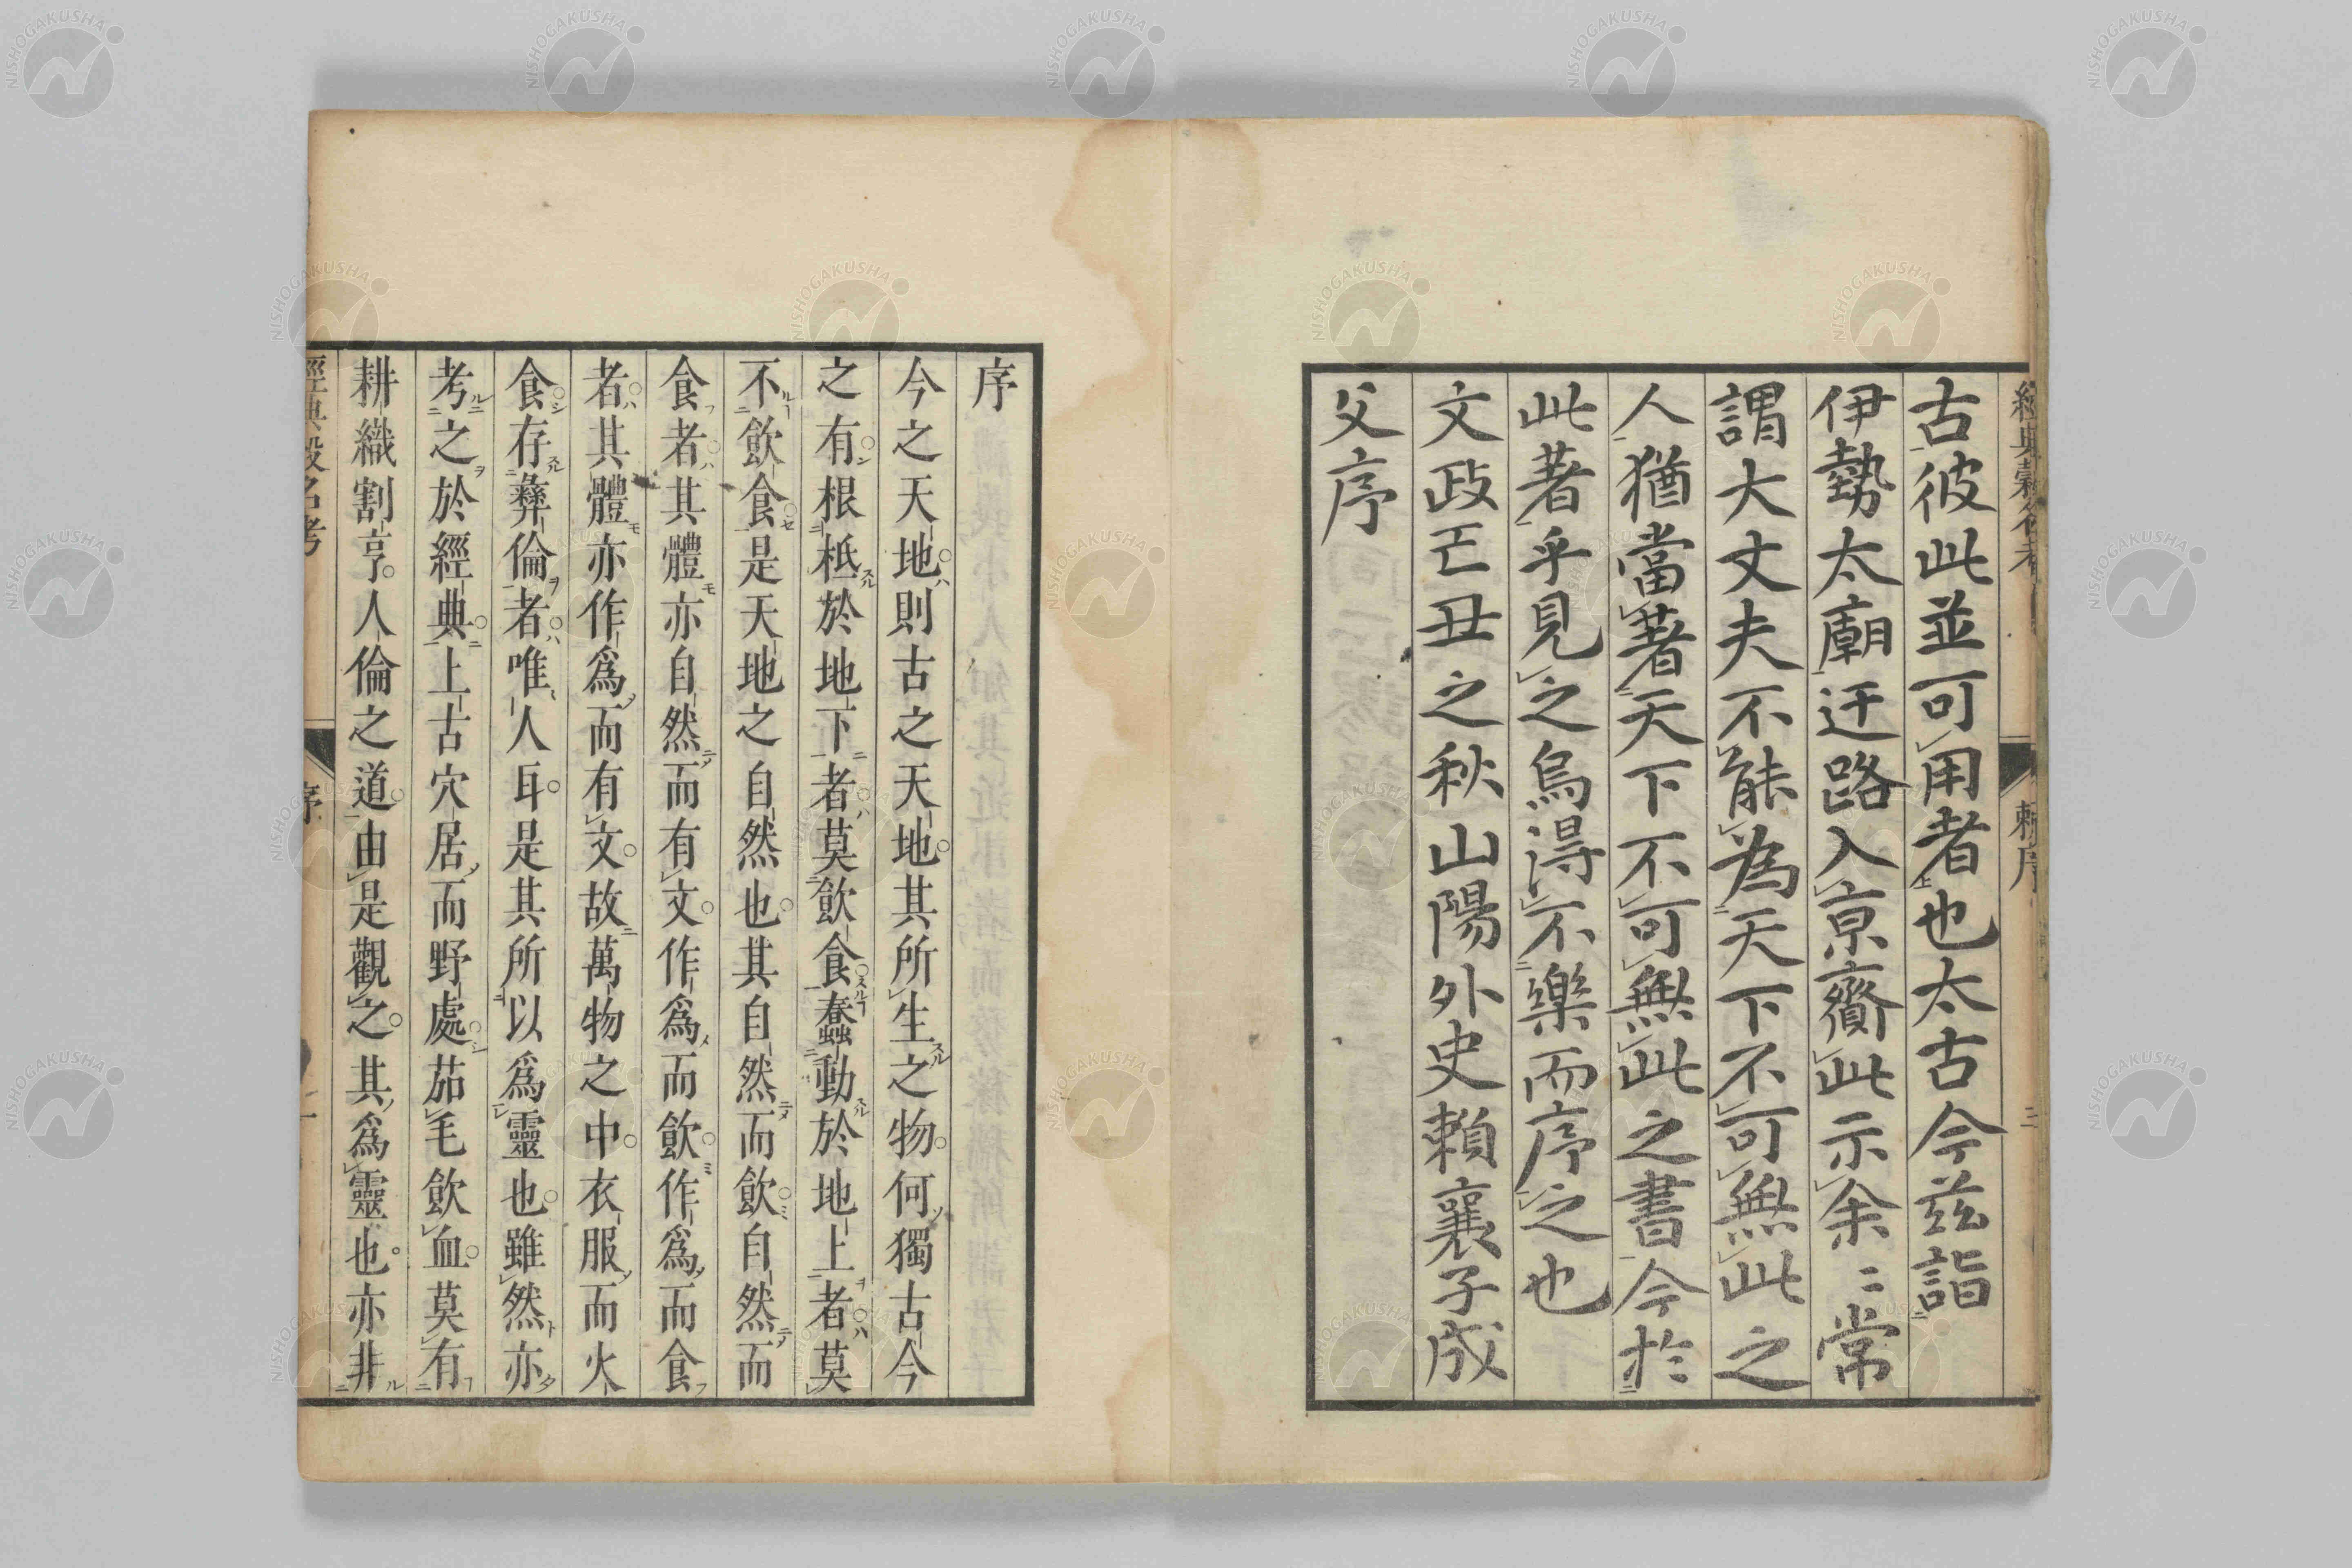 經典穀名考
賴序
二
古彼此並可用者也太古今茲詣
伊勢太廟迂路入京齎此示余〻常
謂大丈夫不能為天下不可無此之
人猶當著天下不可無此之書今於
此著乎見之烏得不樂而序之也
文政丁丑之秋山陽外史賴襄子成
父序
序
今之天地則古之天地其所生之物何獨古今
之有根柢於地下者莫飲食蠢動於地上者莫
不飲食是天地之自然也其自然而飲自然而
食者其體亦自然而有文作爲而飲作爲而食
者其體亦作爲而有文故萬物之中衣服而火
食存彝倫者唯人耳是其所以爲靈也雖然亦
考之於經典上古穴居而野處茹毛飲血莫有
耕織割亨人倫之道由是觀之其爲靈也亦非
經典穀名考
序
一
NISHOGAKUSHA